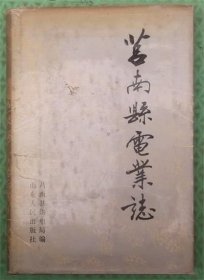 莒南縣電業誌
莒南县供电局编
山东人民出版社